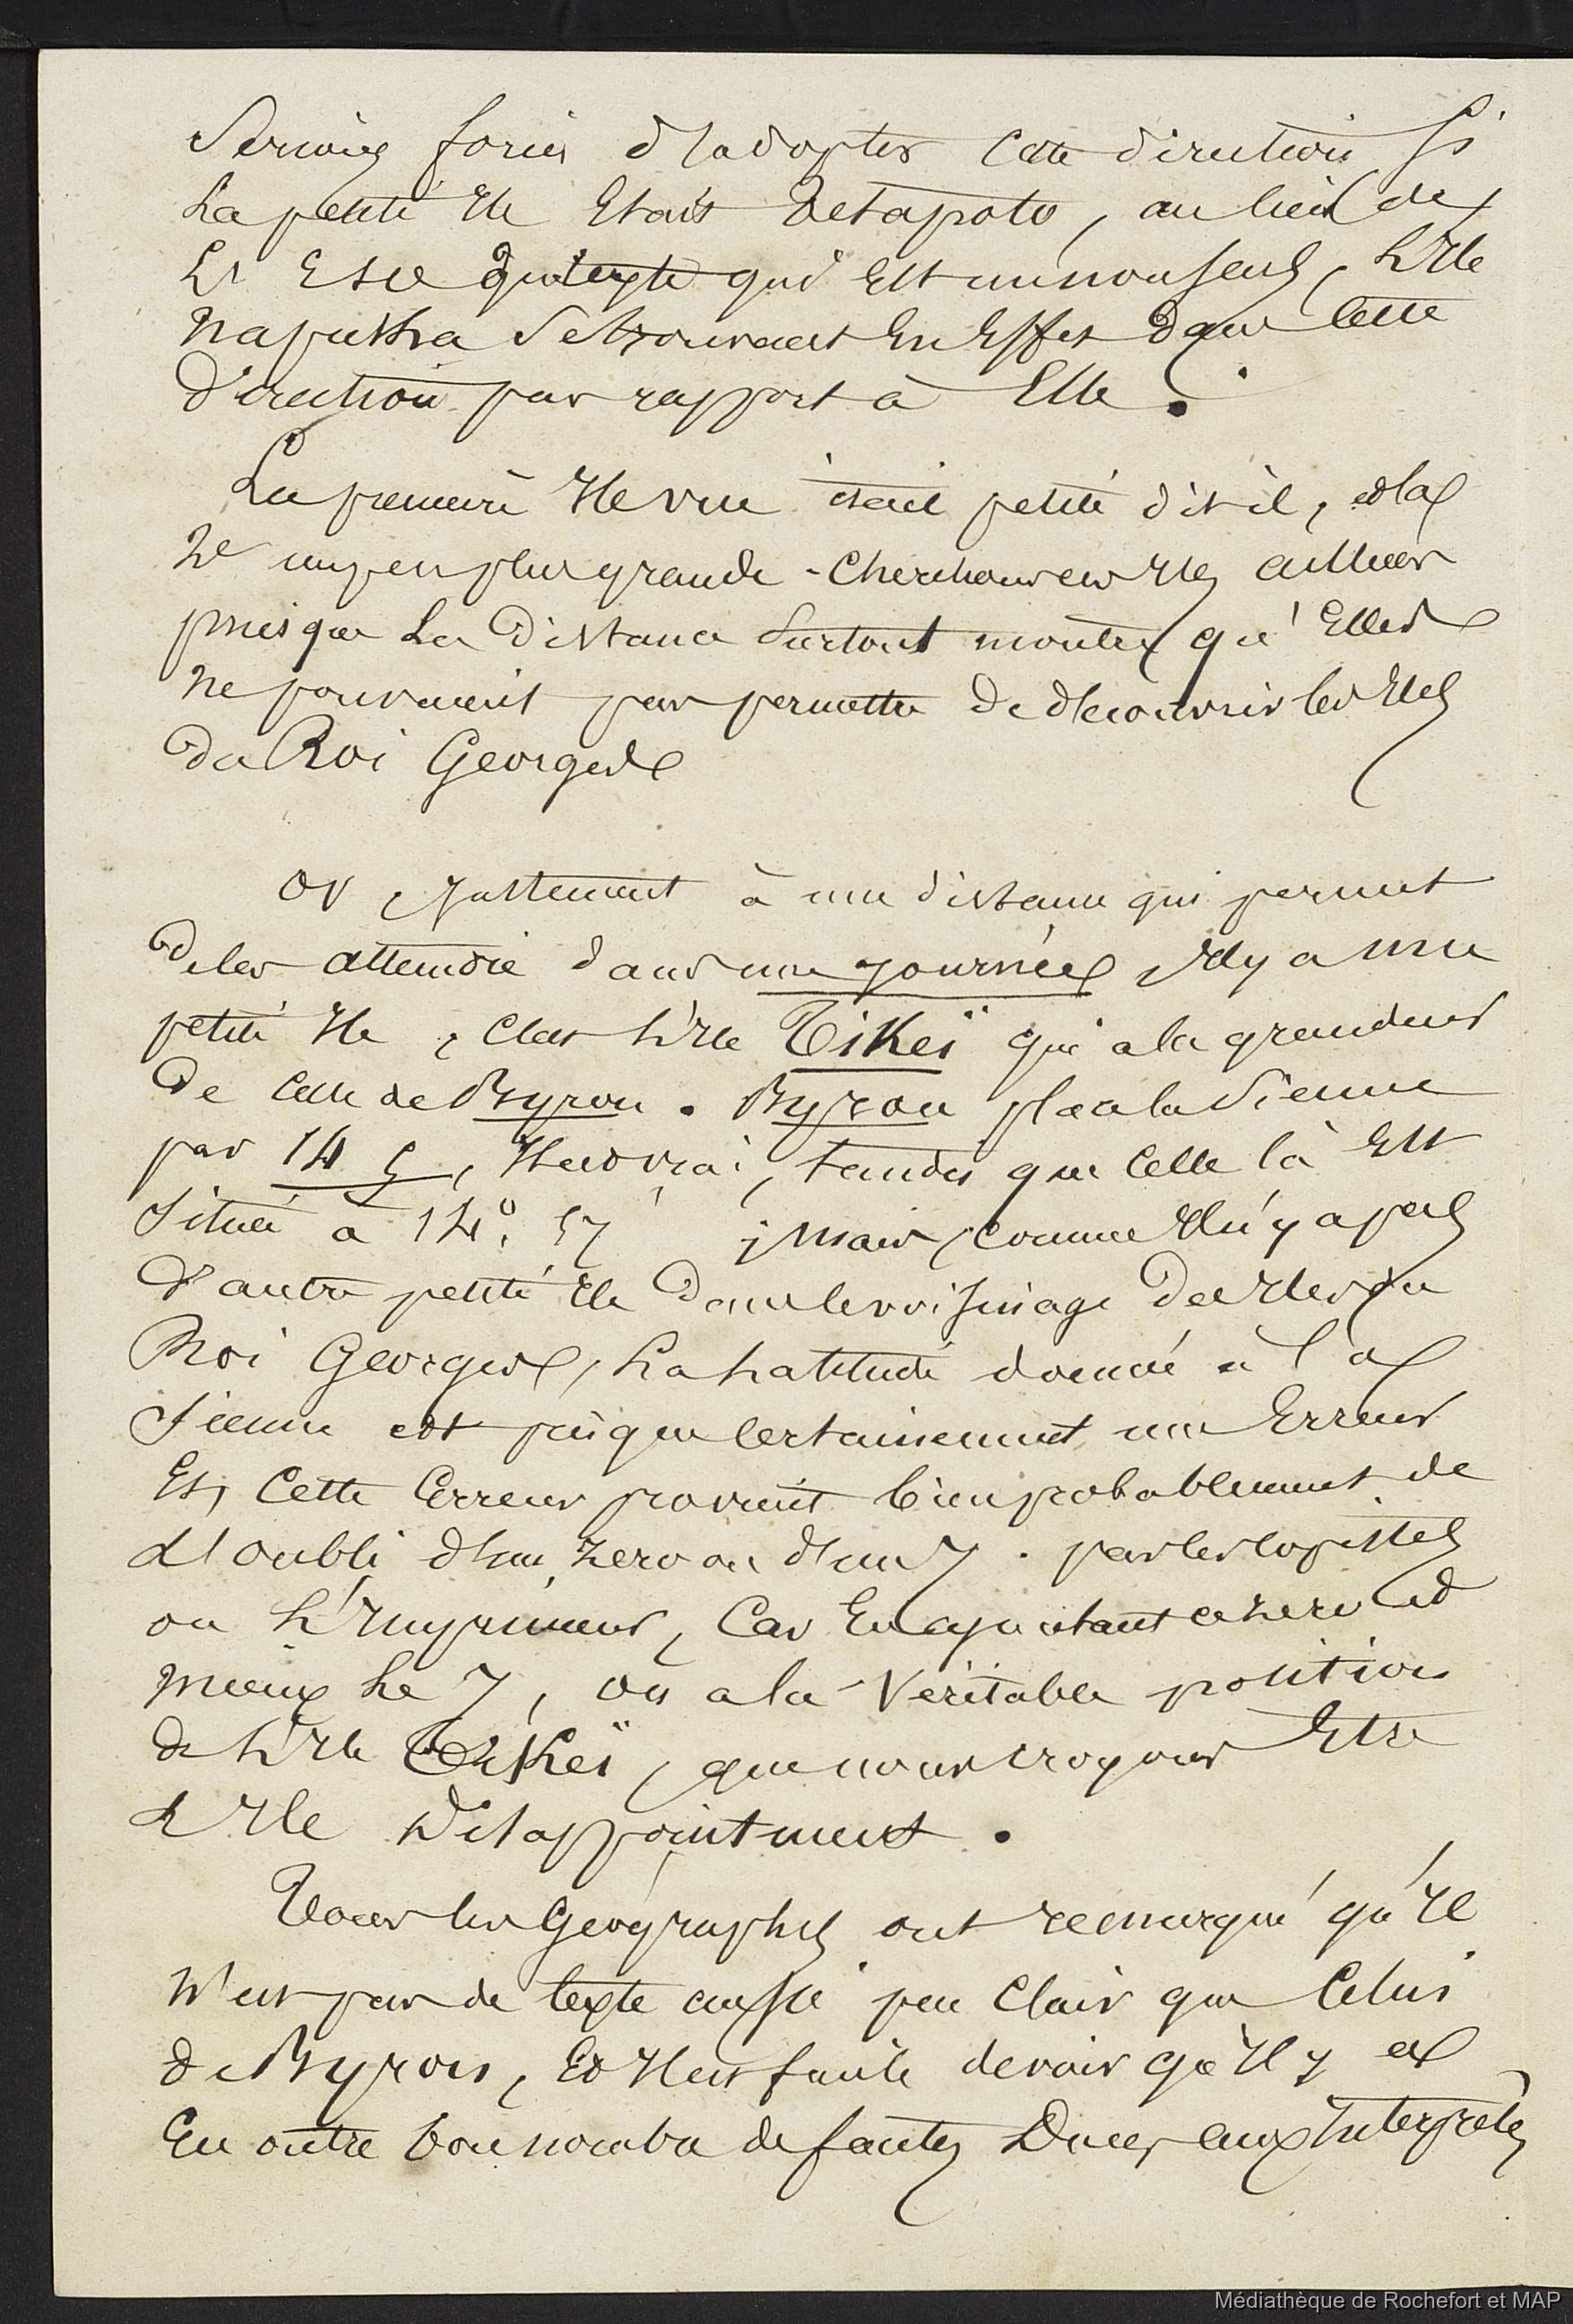 Serions forcés d'adopter cette direction si
La petite Ile Etait Oetapoto, au lieu de
L'Ese qui est un non sens, L'Ile
Naputka se trouvant En Effet dans cette
direction par rapport à Elle.
La premiere Ile vue était petite dit-il, et la
2e un peu plus grande. Cherchons ces Iles ailleurs
puisque La Distance Surtout montre qu'Elles
Ne pouvaient pas permettre de decouvrir les Iles
du Roi Georges
Or justement à une distance qui permet
de les atteindre dans une journée Il y a une
petite Ile, C'est L'Ile Tikeï qui a la grandeur
De celle de Byron. Byron placa la Sienne
par 14 5, Il est vrai, tandis que Celle là Est
Située à 14°. 57 ; Mais, comme Il n'y a pas
d'autre petite Ile dans le voisinage des Iles du
Roi Georges, La Latitude donnée à la
Sienne est presque certainement une Erreur
Et, Cette Erreur provient bien probablement de
d'oubli d'un zero ou d'un 7. par les copistes
ou L'Imprimeur, Car En ajoutant ce zero et
mieux Le 7, on a la Véritable position
de L'Ile Tikeï, que nous croyons Etre
L'Ile Disappointment.
Tous les Géographes ont remarqué qu'Il
N'est pas de texte aussi peu Clair que Celui
de Byron, Et Il est facile de voir qu'Il y a
En outre bon nombre de fautes Dues aux Interprètes
Médiathèque de Rochefort et MAP